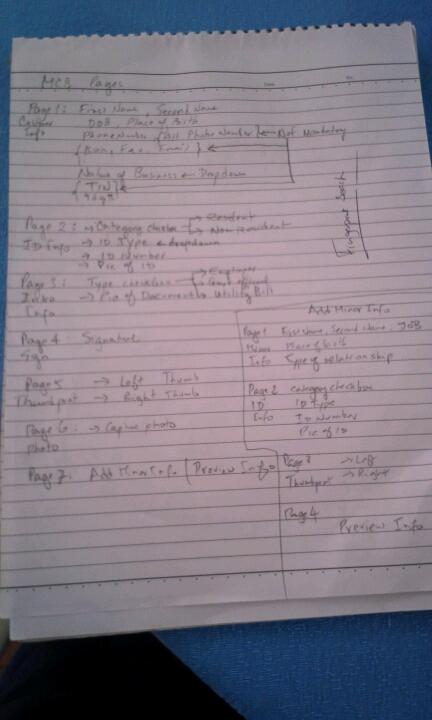 MCB Pages
Page 1: First Name, Second Name
Info DOB, Place of Birth
Phone Number { Phone Number } Not Mandatory
{ Fax, Email }
Nature of Business ← Dropdown
{ TIN }
Page 2: → Category checkbox Resident
Non resident
ID Info → ID Type ← dropdown
→ ID Number
→ Pic of ID
Page 3: Type checkbox Employer
Info → Pic of Document → Utility Bill
Page 4: Signature
Sign
Page 5 → Left Thumb
Thumbprint → Right Thumb
Page 6: → Capture photo
photo
Page 7: Add Minor Info | Preview Info
Fingerprint
Add Minor Info
Page 1 First Name, Second Name, DOB
Minor Place of birth
Info Type of relationship
Page 2 category checkbox
ID ID Type
Info ID Number
Pic of ID
Page 3 → Left
Thumbprint → Right
Page 4
Preview Info